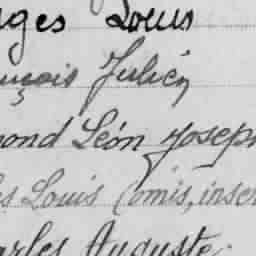 ges Louis
nçois Julien
mond Léon Joseph
es Louis (omis, inser
arles Auguste